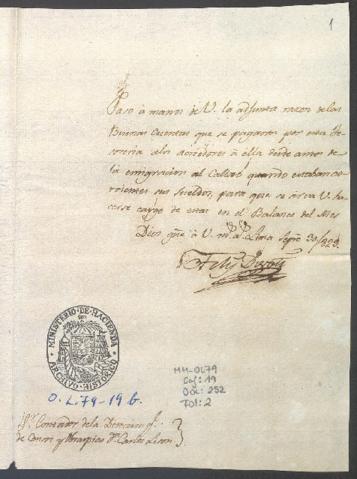 1
Paso á manos de V. la adjunta razon de las
Buenas Cuentas que se pagaron por esta Te-
soreria a los acredores á ella desde antes de
la emigracion al Callao quando estaban co-
rrientes sus sueldos, para que se sirva V. ha-
cerse cargo de estas en el Balance del Mes
Dios gue. á V. m. a. Lima Sepre. 30/825.
MINISTERIO·DE·HACIENDA
ARCHIVO·HISTORICO
O.L.79-19b.
MH-OL79
Caj: 19
Doc: 252
Fol: 2
Sr. Contador de la Direccion Jl.
de Censos y Obras pias Dn. Carlos